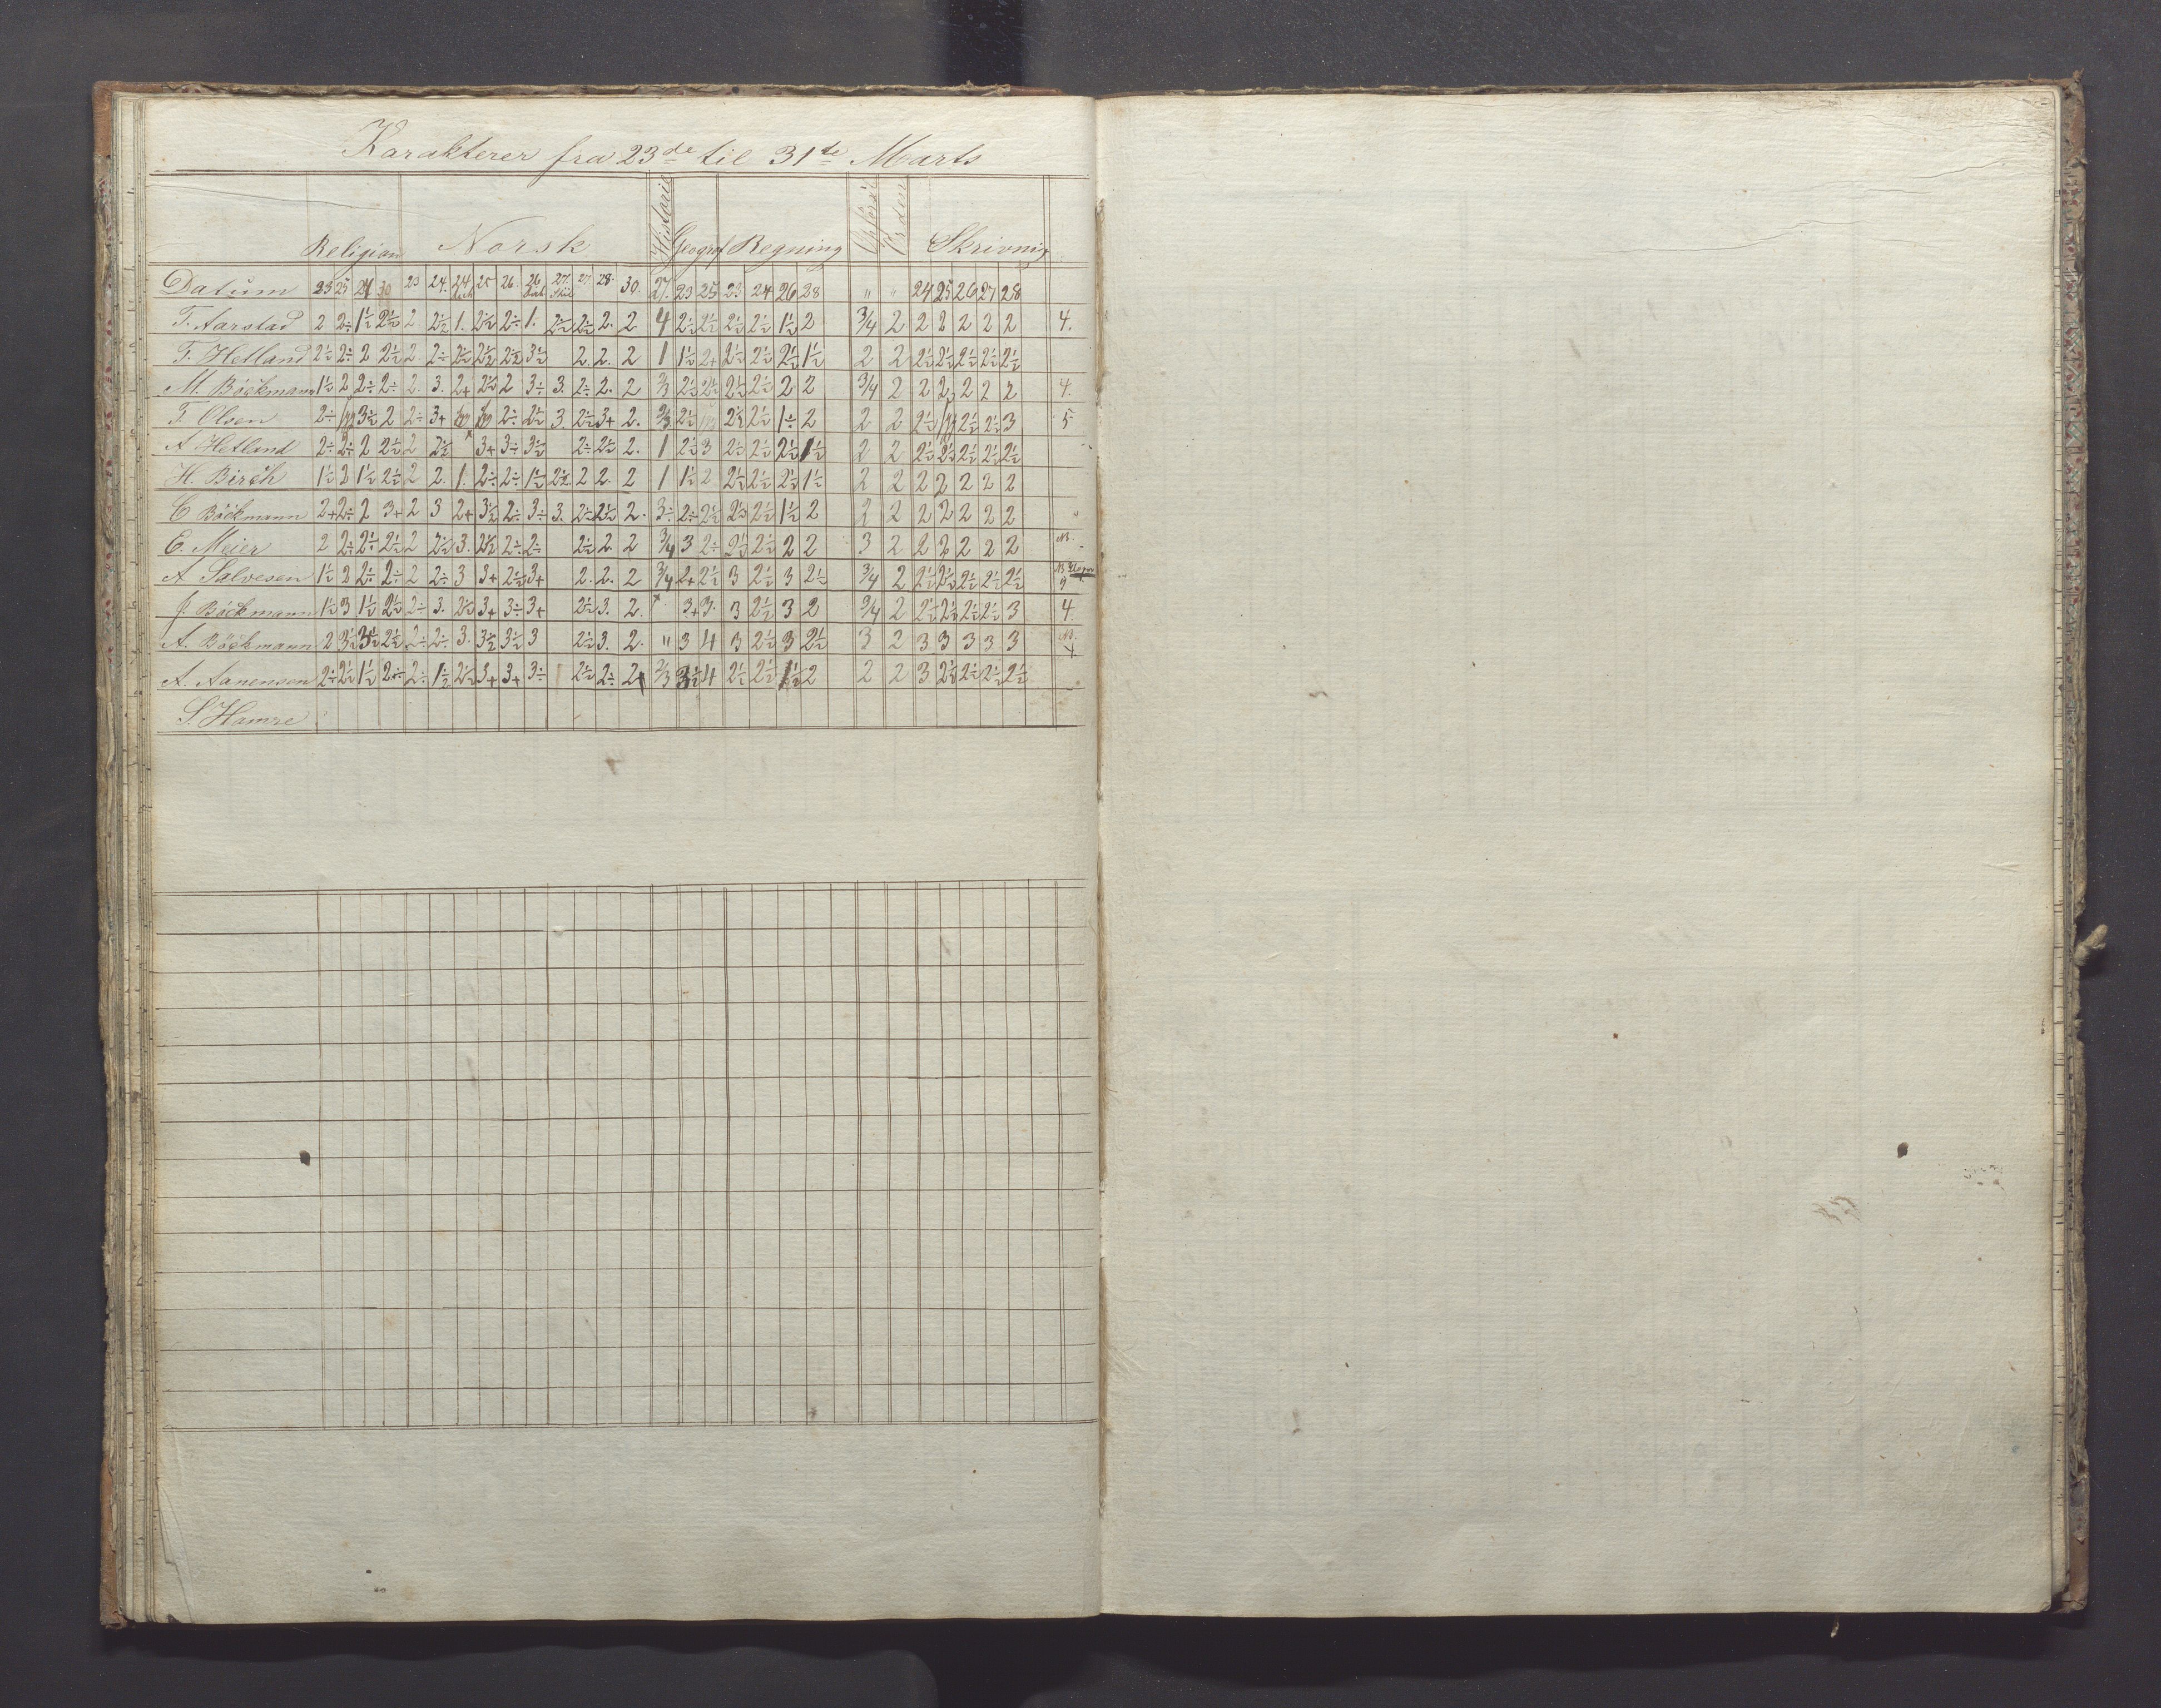 Karakterer fra 23de til 31te Marts
Religion Norsk Historie Geograf Regning Opførsel Orden Skrivning
Datum 23 25 27 30 23 24. 24 25 26. 26 27. 27 28. 30. 27. 23 25 23 24 26 28 " " 24 25 26 27 28
T. Aarstad 2 2÷ 1½ 2½ 2. 2½ 1. 2½ 2÷ 1. 2½ 2½ 2. 2 4 2½ 2½ 2½ 2½ 1½ 2 3/4 2 2 2 2 2 2 4.
T. Hetland 2½ 2÷ 2 2½ 2 2÷ 2½ 2½ 2½ 3½ 2. 2. 2 1 1½ 2+ 2½ 2½ 2½ 1½ 2 2 2½ 2½ 2½ 2½ 2½
M. Böckmann 1½ 2 2÷ 2÷ 2. 3. 2+ 2½ 2 3÷ 3. 2÷ 2. 2 2/3 2½ 2½ 2½ 2½ 2 2 3/4 2 2 2 2 2 2 4.
T. Olsen 2÷ 3½ 2 2÷ 3+ 2÷ 2½ 3. 2½ 3+ 2. 2/3 2½ 2½ 2½ 1÷ 2 2 2 2½ 2½ 2½ 3 5
A Hetland 2÷ 2÷ 2 2½ 2 2½ 3+ 3÷ 3½ 2÷ 2½ 2. 1 2½ 3 2½ 2½ 2½ 1½ 2 2 2½ 2½ 2½ 2½ 2½
H. Birch 1½ 2 1½ 2½ 2 2. 1. 2÷ 2÷ 1½ 2½ 2 2. 2 1 1½ 2 2½ 2½ 2½ 1½ 2 2 2 2 2 2 2
C Böckmann 2+ 2÷ 2 3+ 2 3 2+ 3½ 2÷ 3÷ 3. 2½ 2½ 2. 3÷ 2÷ 2½ 2½ 2½ 1½ 2 2 2 2 2 2 2 2
E. Meier 2 2÷ 2÷ 2½ 2 2½ 3. 2½ 2÷ 2÷ 2½ 2. 2 3/4 3 2÷ 2½ 2½ 2 2 3 2 2 2 2 2 2
A Salvesen 1½ 2 2÷ 2÷ 2 2÷ 3 3+ 2½ 3+ 2. 2. 2 3/4 2+ 2½ 3 2½ 3 2½ 3/4 2 2½ 2½ 2½ 2½ 2½
J. Böckmann 1½ 3 1½ 2½ 2÷ 3. 2½ 3+ 3÷ 3+ 2½ 3. 2. × 3+ 3. 3 2½ 3 2 3/4 2 2½ 2½ 2½ 2½ 3 4.
A. Böckmann 2 3½ 3½ 2½ 2÷ 2÷ 3. 3½ 3½ 3 2½ 3. 2. " 3 4 3 2½ 3 2½ 3 2 3 3 3 3 3
A. Aanensen 2÷ 2½ 1½ 2÷ 2÷ 1½ 2½ 3+ 3+ 3÷ 2½ 2÷ 2 2/3 3½ 4 2½ 2½ 1½ 2 2 2 3 2½ 2½ 2½ 2½
S. Hamre